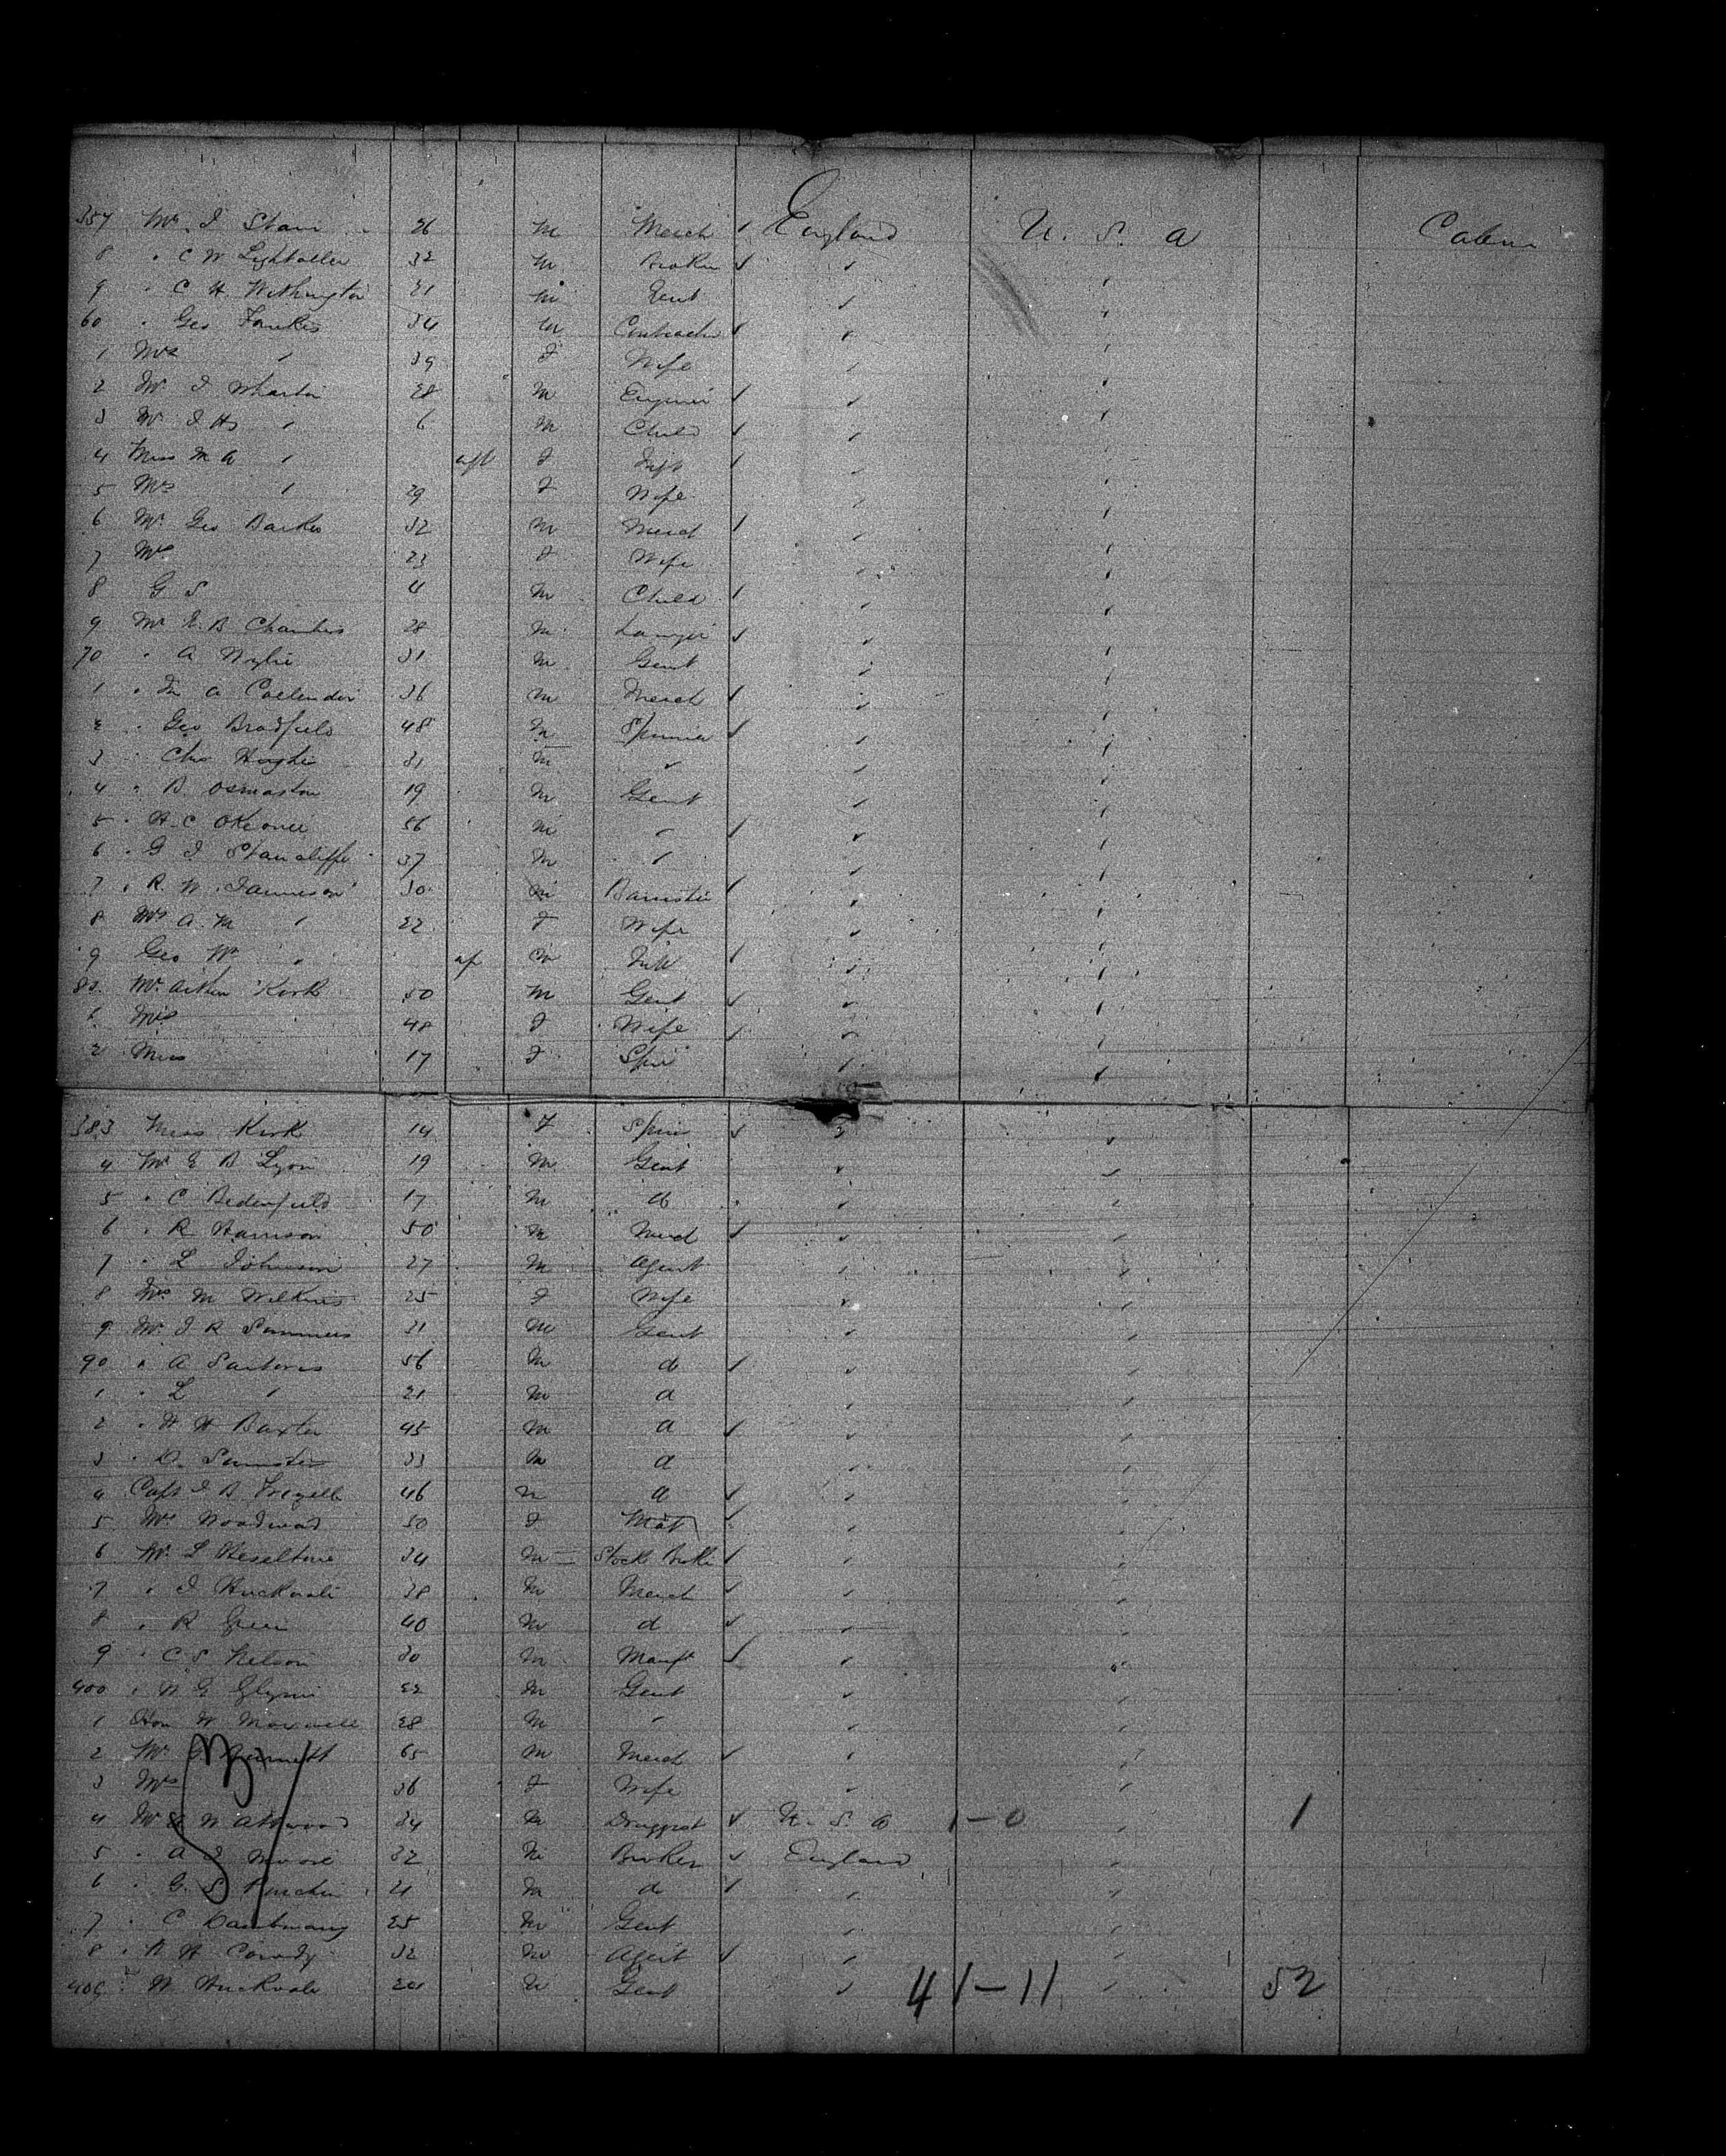 357 Mr. J Starr 26 M Merch England U. S. A Cabin
8 " C W Lighbatler 32 M Broker "
9 " C H Withington 21 M Gent " "
60 " Geo Fawkes 34 M Contractor " "
1 Mrs " 39 F Wife " "
2 Mr J Wharton 28 M Engineer " "
3 Mr J Hy " 6 M Child " "
4 Miss M A " inft F Inft " "
5 Mrs " 29 F Wife " "
6 Mr Geo Barker 32 M Merch " "
7 Mrs 23 F Wife " "
8 G S 4 M Child " "
9 Mr E. B Chambers 28 M Lawyer " "
70 " A Wylie 31 M Gent " "
1 " A Callender 36 M Merch " "
2 " Geo Bradfield 48 M Spinner " "
3 " Chas 31 M " " "
4 " B Osmaston 19 M Gent " "
5 " H. C 56 M " " "
6 " G J Stancliffe 37 M " " "
7 " R. W. Jamieson 30 M Barrister " "
8 Mrs A. M " 22 F Wife " "
9 Geo W " inf M Inft " "
80 Mr Aitken Kirk 50 M Gent " "
1 Mrs 48 F Wife " "
2 Miss 17 F Spin " "
383 Miss Kirk 14 F Spin " "
4 Mr E B Lyon 19 M Gent " "
5 " C Bedenfield 17 M do " "
6 " R Harrison 50 M Merch " "
7 " L Johnson 27 M Agent " "
8 Mrs M Wilkins 25 F Wife " "
9 Mr. J R Summers 21 M Gent " "
90 " A Sartoris 56 M do " "
1 " L " 21 M d " "
2 " H H Baxter 45 M d " "
3 " D. 33 M d " "
4 Capt J B 46 M d " "
5 Mrs Woodward 50 F Mat " "
6 Mr. L Heseltine 34 M Stock Broker " "
7 " J Huckvale 38 M Merch " "
8 " R Green 40 M d " "
9 " C. S. Nelson 30 M Manft " "
400 " W G Glynn 22 M Gent " "
1 Hon W Maxwell 28 M " " "
2 Mr Bennett 65 M Merch " "
3 Mrs 36 F Wife " "
4 Mr W Attwood 34 M Druggist U. S. A 1-0 " 1
5 " A J Moore 32 M Broker England "
6 " G. S 21 M do " "
7 " C 25 M Gent " "
8 " H Conody 32 M Agent " "
409 " W Huckvale 20 M Gent " 41-11 " 52